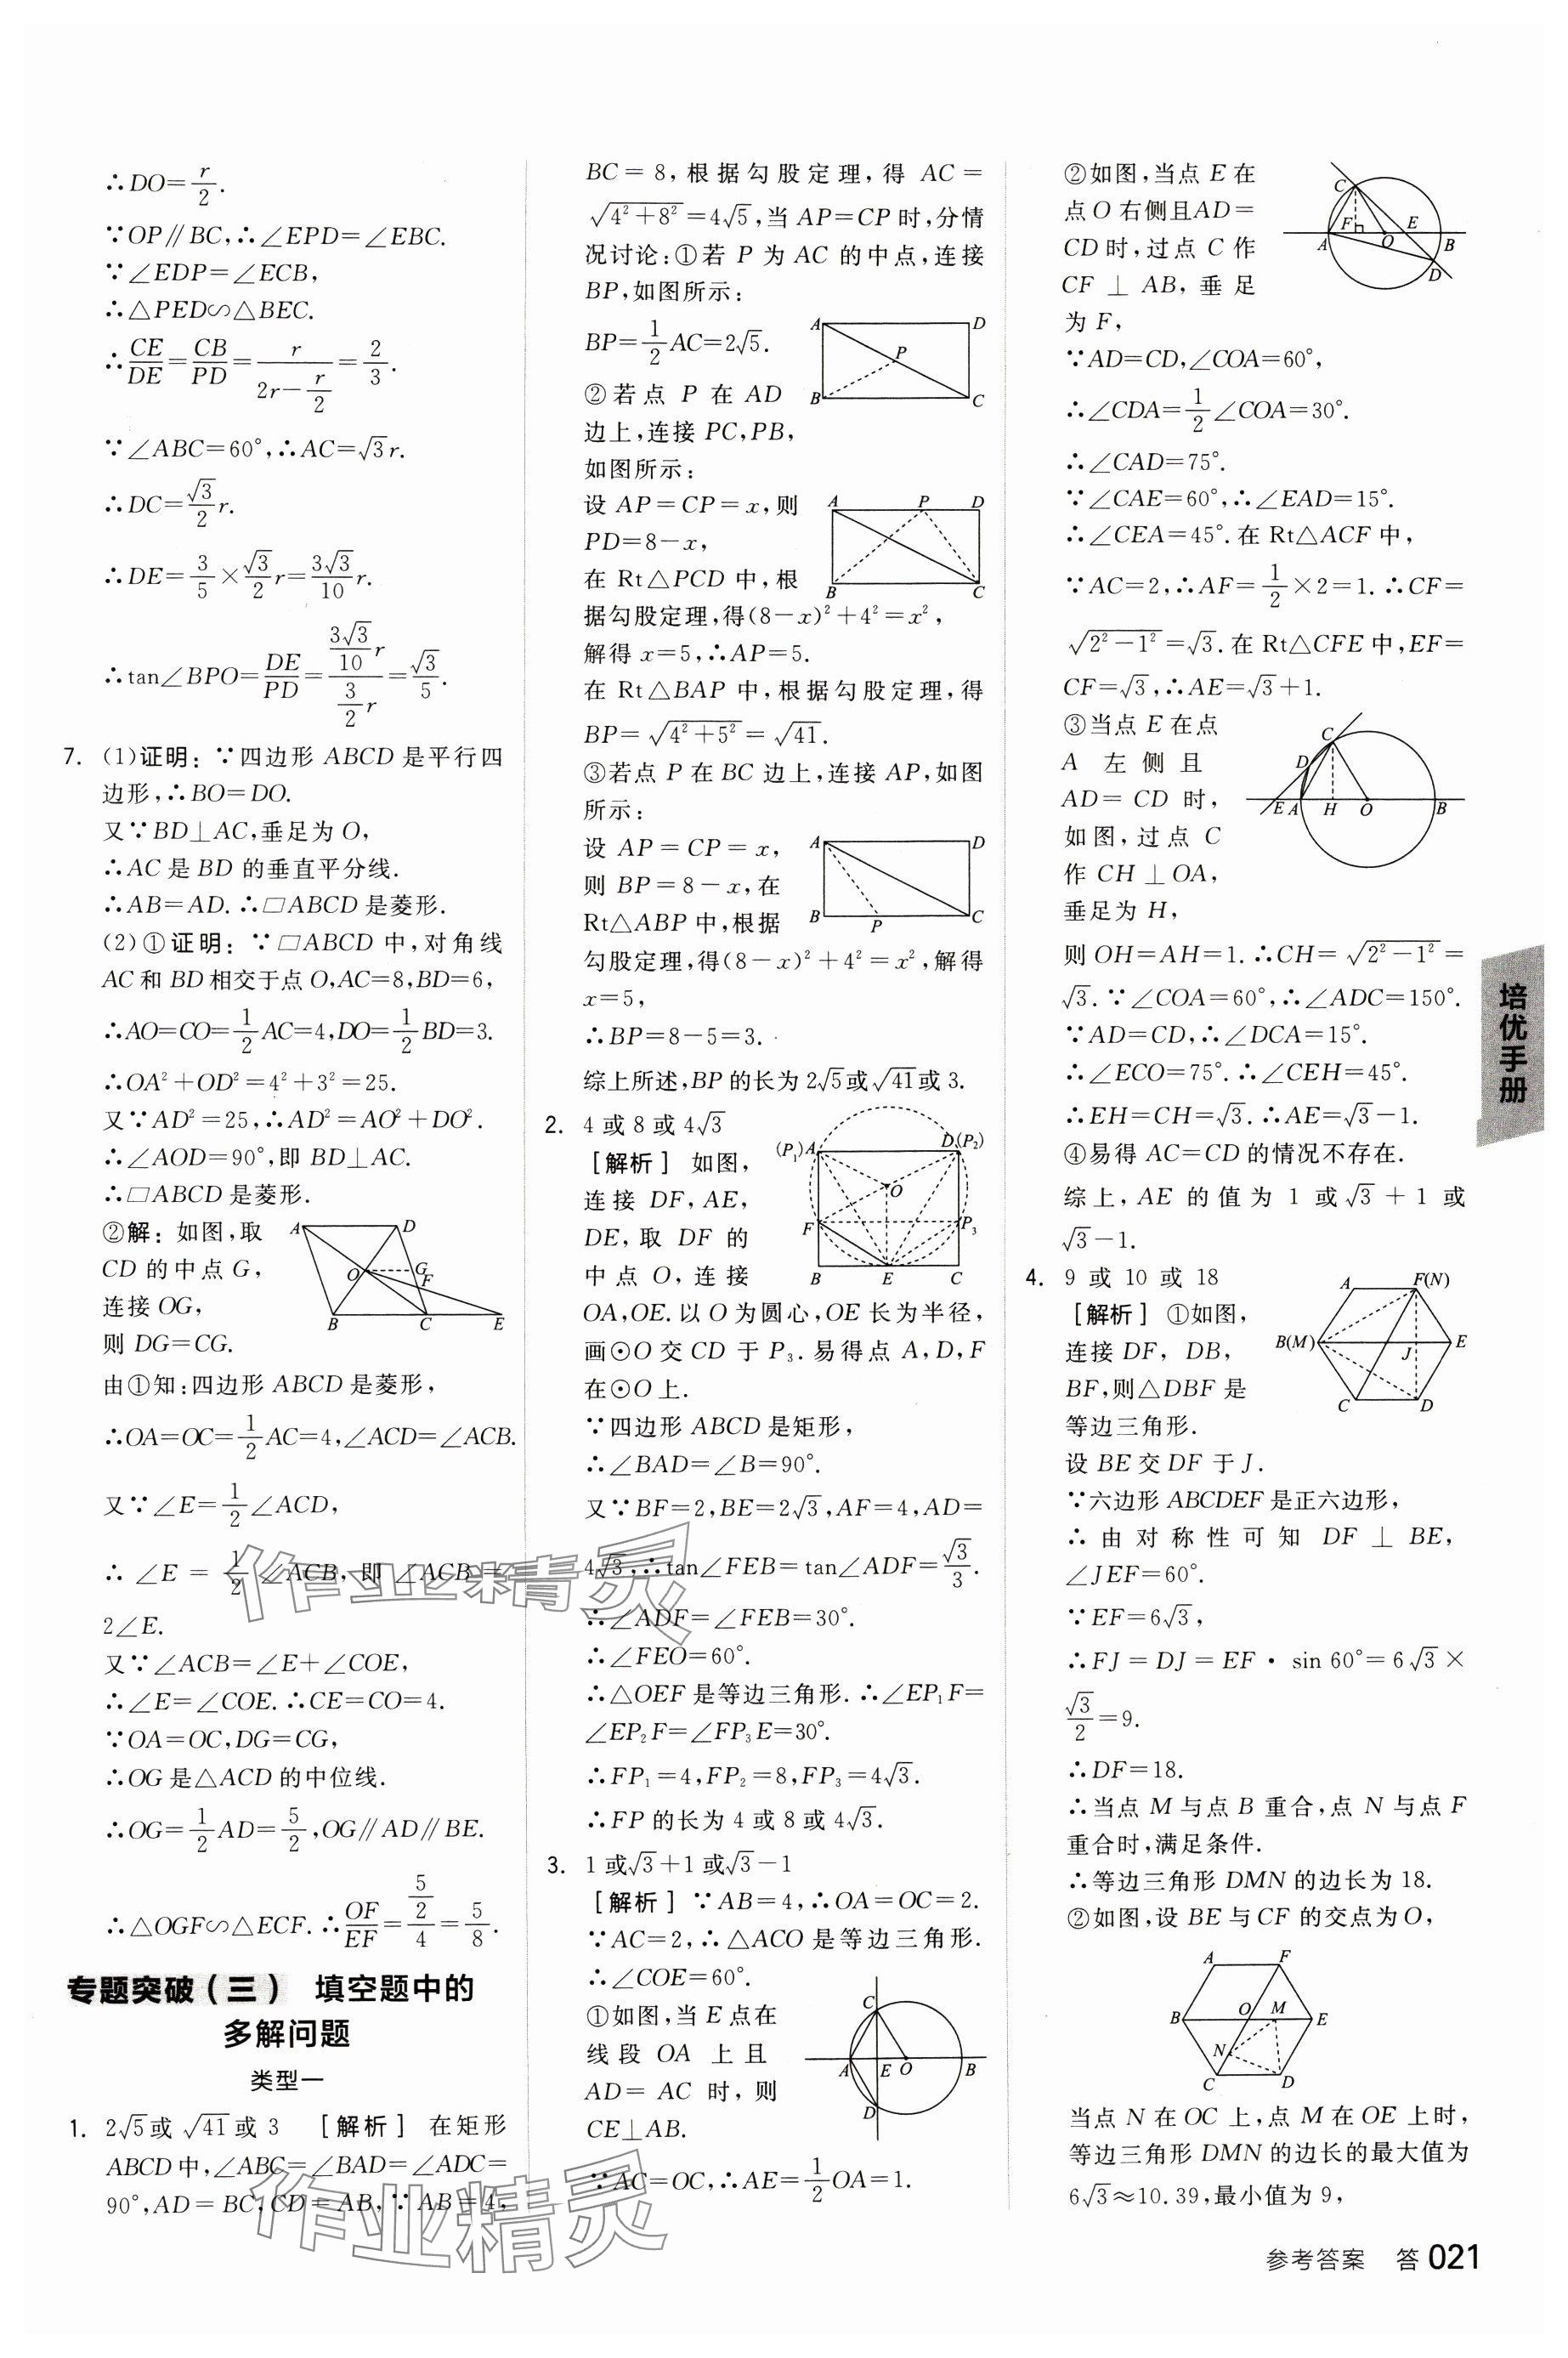 ∴DO=r/2.
∵OP∥BC,∴∠EPD=∠EBC.
∵∠EDP=∠ECB,
∴△PED∽△BEC.
∴CE/DE=CB/PD=r/(2r-r/2)=2/3.
∵∠ABC=60°,∴AC=√3r.
∴DC=√3/2 r.
∴DE=3/5×√3/2 r=3√3/10 r.
∴tan∠BPO=DE/PD=(3√3/10 r)/(3/2 r)=√3/5.
7. (1)证明:∵四边形 ABCD 是平行四
边形,∴BO=DO.
又∵BD⊥AC,垂足为 O,
∴AC 是 BD 的垂直平分线.
∴AB=AD.∴▱ABCD 是菱形.
(2)①证明:∵▱ABCD 中,对角线
AC 和 BD 相交于点 O,AC=8,BD=6,
∴AO=CO=1/2 AC=4,DO=1/2 BD=3.
∴OA²+OD²=4²+3²=25.
又∵AD²=25,∴AD²=AO²+DO².
∴∠AOD=90°,即 BD⊥AC.
∴▱ABCD 是菱形.
②解:如图,取
CD 的中点 G,
连接 OG,
则 DG=CG.
A D O G F B C E
由①知:四边形 ABCD 是菱形,
∴OA=OC=1/2 AC=4,∠ACD=∠ACB.
又∵∠E=1/2∠ACD,
∴∠E=1/2∠ACB,即∠ACB=
2∠E.
又∵∠ACB=∠E+∠COE,
∴∠E=∠COE.∴CE=CO=4.
∵OA=OC,DG=CG,
∴OG 是△ACD 的中位线.
∴OG=1/2 AD=5/2,OG∥AD∥BE.
∴△OGF∽△ECF.∴OF/EF=(5/2)/4=5/8.
专题突破(三) 填空题中的
多解问题
类型一
1. 2√5或√41或 3 [解析] 在矩形
ABCD 中,∠ABC=∠BAD=∠ADC=
90°,AD=BC,CD=AB,∵AB=4,
BC=8,根据勾股定理,得 AC=
√(4²+8²)=4√5,当 AP=CP 时,分情
况讨论:①若 P 为 AC 的中点,连接
BP,如图所示:
BP=1/2 AC=2√5.
A D P B C
②若点 P 在 AD
边上,连接 PC,PB,
如图所示:
设 AP=CP=x,则
PD=8-x,
A P D B C
在 Rt△PCD 中,根
据勾股定理,得(8-x)²+4²=x²,
解得 x=5,∴AP=5.
在 Rt△BAP 中,根据勾股定理,得
BP=√(4²+5²)=√41.
③若点 P 在 BC 边上,连接 AP,如图
所示:
设 AP=CP=x,
则 BP=8-x,在
Rt△ABP 中,根据
A D B P C
勾股定理,得(8-x)²+4²=x²,解得
x=5,
∴BP=8-5=3.
综上所述,BP 的长为 2√5或√41或 3.
2. 4 或 8 或 4√3
[解析] 如图,
连接 DF,AE,
DE,取 DF 的
中点 O,连接
(P₁)A D(P₂) O F P₃ B E C
OA,OE.以 O 为圆心,OE 长为半径,
画⊙O 交 CD 于 P₃.易得点 A,D,F
在⊙O 上.
∵四边形 ABCD 是矩形,
∴∠BAD=∠B=90°.
又∵BF=2,BE=2√3,AF=4,AD=
4√3,∴tan∠FEB=tan∠ADF=√3/3.
∴∠ADF=∠FEB=30°.
∴∠FEO=60°.
∴△OEF 是等边三角形.∴∠EP₁F=
∠EP₂F=∠FP₃E=30°.
∴FP₁=4,FP₂=8,FP₃=4√3.
∴FP 的长为 4 或 8 或 4√3.
3. 1 或√3+1 或√3-1
[解析] ∵AB=4,∴OA=OC=2.
∵AC=2,∴△ACO 是等边三角形.
∴∠COE=60°.
①如图,当 E 点在
线段 OA 上且
AD=AC 时,则
CE⊥AB.
C A E O B D
∵AC=OC,∴AE=1/2 OA=1.
②如图,当点 E 在
点 O 右侧且AD=
CD 时,过点 C 作
CF⊥AB,垂足
为 F,
C F E A O B D
∵AD=CD,∠COA=60°,
∴∠CDA=1/2∠COA=30°.
∴∠CAD=75°.
∵∠CAE=60°,∴∠EAD=15°.
∴∠CEA=45°.在 Rt△ACF 中,
∵AC=2,∴AF=1/2×2=1.∴CF=
√(2²-1²)=√3.在 Rt△CFE 中,EF=
CF=√3,∴AE=√3+1.
③当点 E 在点
A 左侧且
AD=CD 时,
如图,过点 C
作 CH⊥OA,
垂足为 H,
C D E A H O B
则 OH=AH=1.∴CH=√(2²-1²)=
√3.∵∠COA=60°,∴∠ADC=150°.
∵AD=CD,∴∠DCA=15°.
∴∠ECO=75°.∴∠CEH=45°.
∴EH=CH=√3.∴AE=√3-1.
④易得 AC=CD 的情况不存在.
综上,AE 的值为 1 或√3+1 或
√3-1.
4. 9 或 10 或 18
[解析] ①如图,
连接 DF,DB,
BF,则△DBF 是
等边三角形.
A F(N) B(M) J E C D
设 BE 交 DF 于 J.
∵六边形 ABCDEF 是正六边形,
∴由对称性可知 DF⊥BE,
∠JEF=60°.
∵EF=6√3,
∴FJ=DJ=EF·sin 60°=6√3×
√3/2=9.
∴DF=18.
∴当点 M 与点 B 重合,点 N 与点 F
重合时,满足条件.
∴等边三角形 DMN 的边长为 18.
②如图,设 BE 与 CF 的交点为 O,
A F B O M E N C D
当点 N 在 OC 上,点 M 在 OE 上时,
等边三角形 DMN 的边长的最大值为
6√3≈10.39,最小值为 9,
培优手册
作业精灵
作业精灵
参考答案 答 021